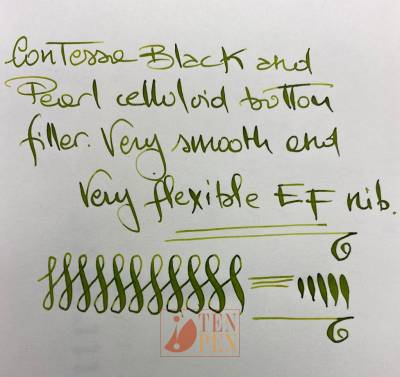 Contesse Black and
Pearl celluloid button
filler. Very smooth and
Very flexible EF nib.
TEN
PEN